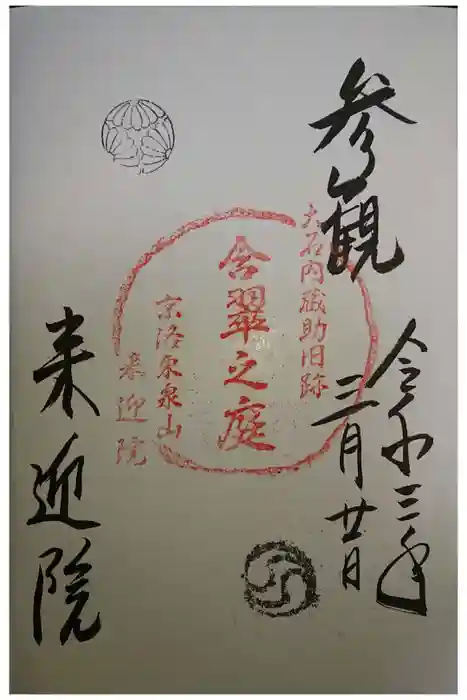 参観
令和三年
三月廿日
大石内蔵助旧跡
含翠之庭
京洛東泉山
来迎院
来迎院